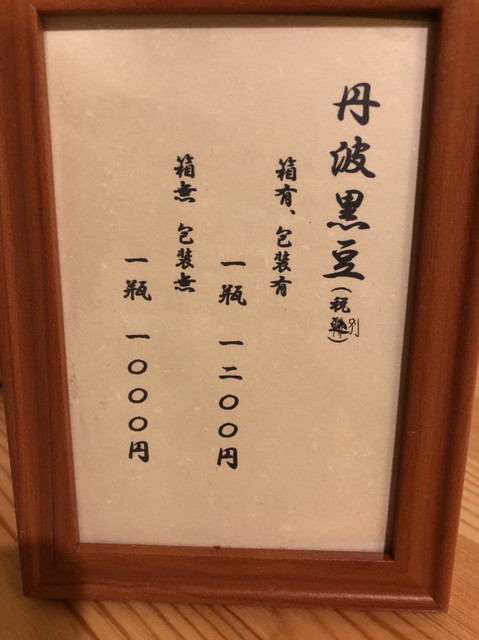 丹波黒豆(税別)
箱有、包装有
一瓶 一二〇〇円
箱無 包装無
一瓶 一〇〇〇円